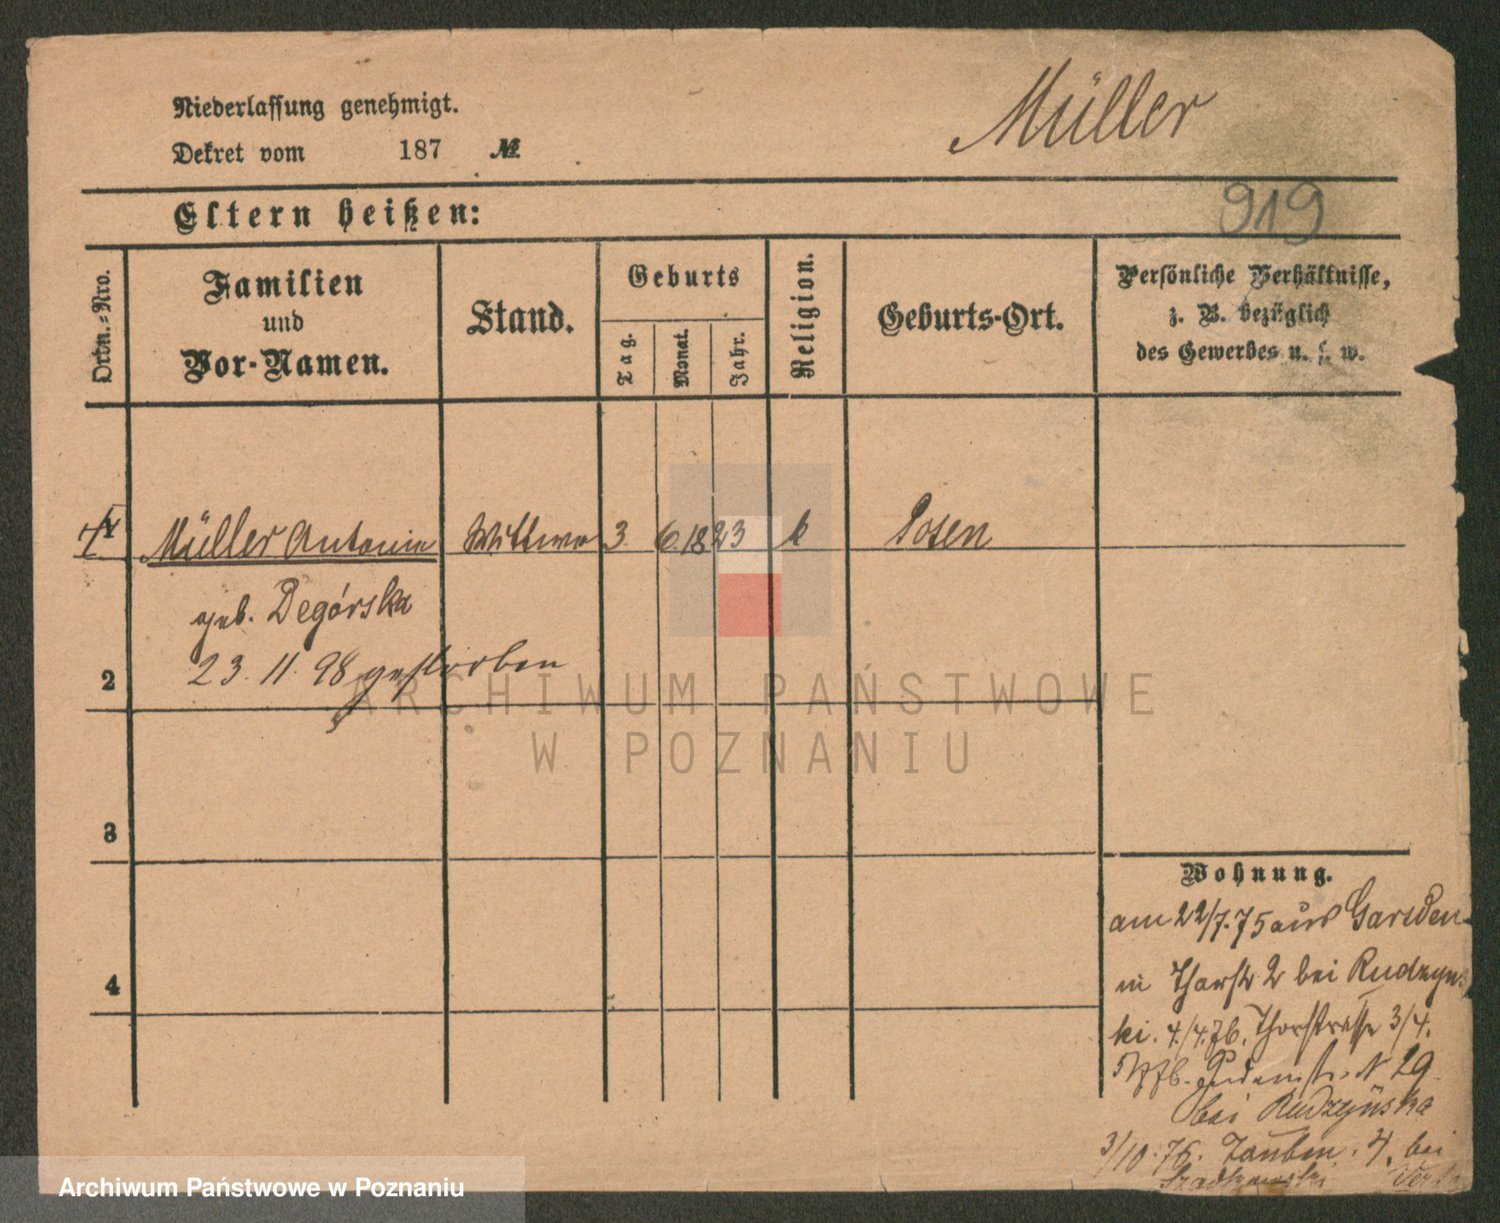 Müller
Niederlassung genehmigt.
Dekret vom 187 №
919
Eltern heißen:
Ordn.-Nro.
Familien
und
Vor-Namen.
Stand.
Geburts
Tag.
Monat.
Jahr.
Religion.
Geburts-Ort.
Persönliche Verhältnisse,
z. B. bezüglich
des Gewerbes u. s. w.
Müller Antonie Wittwe 3 6. 1823 k Posen
geb. Degórska
2 23. 11. 98 gestorben
3
4
Wohnung.
am 22/7. 75 aus
2 bei Rudzyns
ki. 4./4. 76. Thorstrasse 3/4.
N 29
bei Rudzyńska
3/10. 76. Tauben. 4. bei
ARCHIWUM PAŃSTWOWE
W POZNANIU
Archiwum Państwowe w Poznaniu